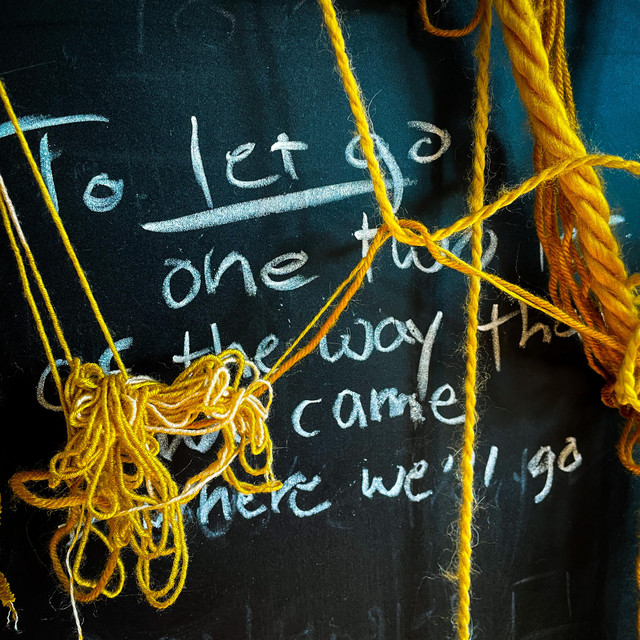 To let go
one two
of the way tha
came
where we'll go